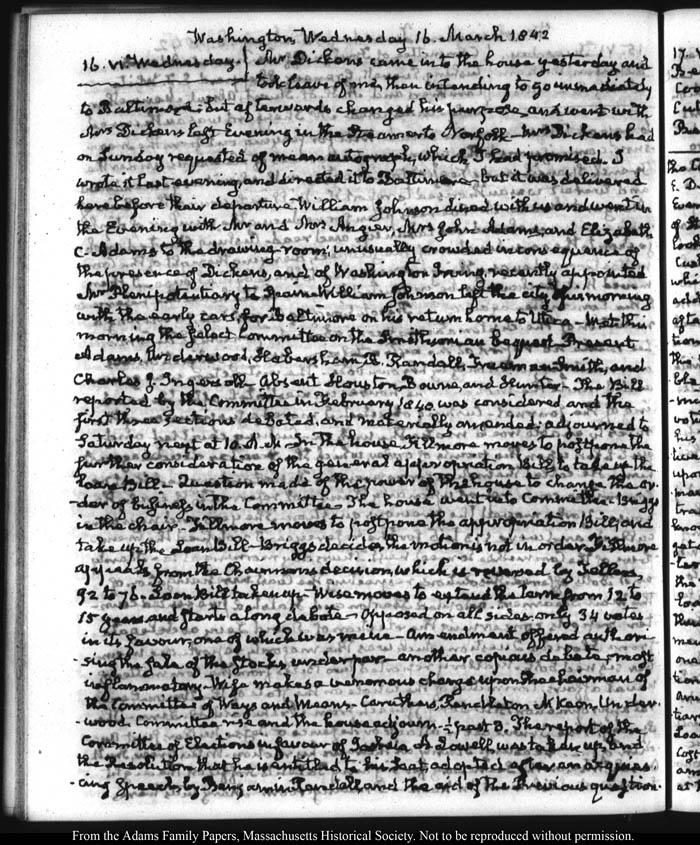 Washington, Wednesday 16. March 1842
16. VI. Wednesday. Mr Dickens came into the house yesterday and
took leave of me, then intending to go immediately
to Baltimore; but afterwards changed his purpose, and went with
Mrs Dickens last Evening in the Steamer to Norfolk — Mrs Dickens had
on Sunday requested of me an autograph, which I had promised. I
wrote it last evening, and directed it to Baltimore, but it was delivered
here before their departure William Johnson dined with us and went in
the Evening with Mr and Mrs Angier, Mrs John Adams, and Elizabeth
C. Adams to the drawing-room; unusually crowded in consequence of
the presence of Dickens, and of Washington Irving, recently appointed
Mr Plenipotentiary to Spain — William Johnson left the city this morning
with the early cars, for Baltimore on his return home to Utica — Met this
morning the Select Committee on the Smithsonian Bequest. Present
Adams, Underwood, Habersham, B. Randall, Truman Smith, and
Charles J. Ingersoll — Absent Houston, Bowne, and Hunter — The Bill
reported by the Committee in February 1840 was considered and the
first three Sections debated, and materially amended: adjourned to
Saturday next at 10. A.M. — In the house Fillmore moves to postpone the
further consideration of the general appropriation Bill, to take up the
Loan Bill — Question made of the power of the house to change the or-
-der of business in the Committee. The house went into Committee — Briggs
in the chair — Fillmore moves to postpone the appropriation Bill, and
take up the Loan Bill — Briggs decides the motion is not in order. Fillmore
appeals from the Chairman's decision, which is reversed by Tellers,
92 to 76. Loan Bill taken up — Wise moves to extend the term from 12 to
15 years, and starts a long debate — Opposed on all sides, only 34 votes
in its favour; one of which was mine — Amendment offered author-
-sing the sale of the Stocks under par — another copious debate, most
inflammatory — Wise makes a venomous charge upon the chairman of
the Committee of Ways and Means — Caruthers, Pendleton McKeon, Under-
-wood. Committee rise and the house adjourn — ½ past 3. The report of the
Committee of Elections in favour of Joshua A Lowell was taken up, and
the Resolution that he is entitled to his seat adopted after an
-cing Speech by Benjamin Randall and the aid of the Previous question.
17.
From the Adams Family Papers, Massachusetts Historical Society. Not to be reproduced without permission.